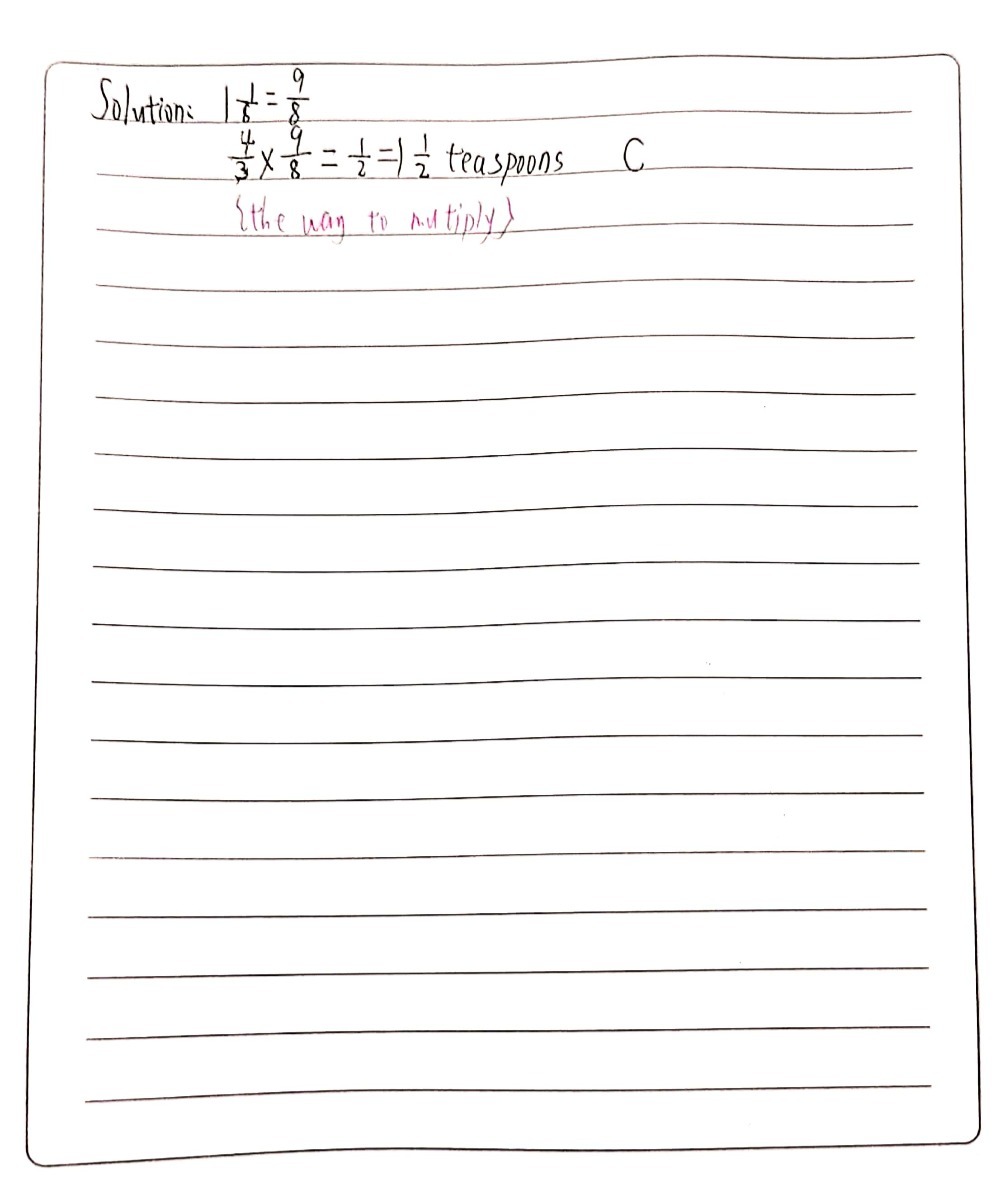 Solution: 1 1/8 = 9/8
4/3 × 9/8 = 1/2 = 1 1/2 teaspoons C
{the way to mutiply}